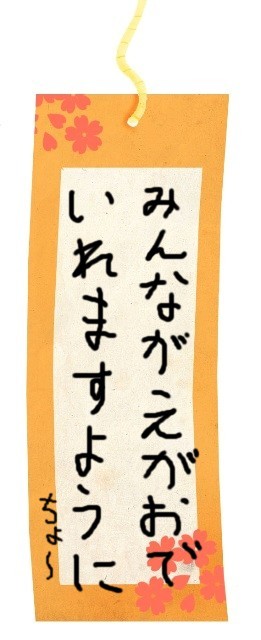 みんながえがおで
いれますように
ちょ〜